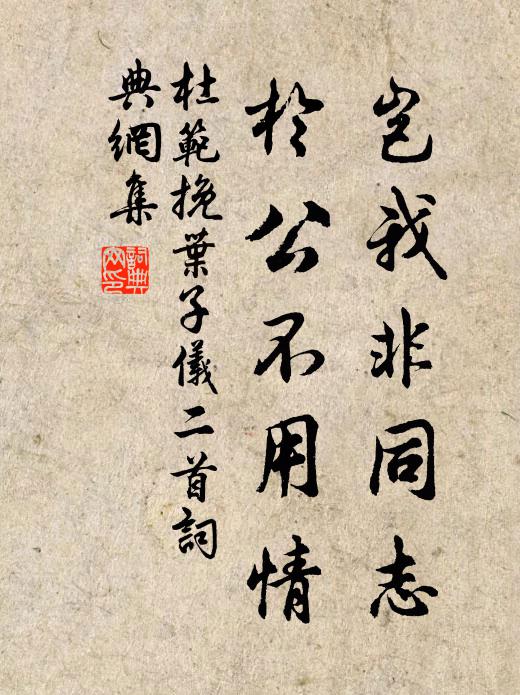 豈我非同志
於公不用情
杜範挽葉子儀二首詞
典網集
詞典